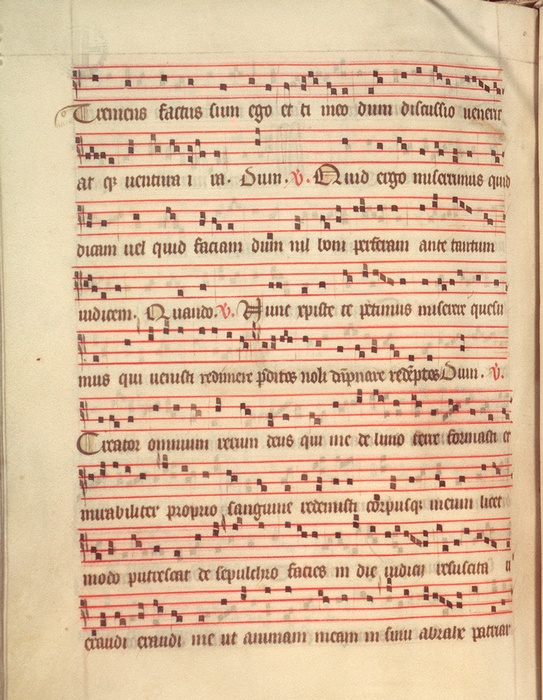 Tremens factus sum ego et ti meo dum discussio uenerit
at q̢ uentura i ra. Dum. ℣. Quid ergo miserrimus quid
dicam uel quid faciam dum nil boni perferam ante tantum
iudicem. Quando. ℣. Nunc xpiste te petimus miserere quesu
mus qui uenisti redimere p̄ditos noli dāpnare redēptos Dum. ℣.
Creator omnium rerum deus qui me de limo terre formasti et
mirabiliter proprio sanguine redemisti corpusq̢ meum licet
modo putrescat de sepulchro facies in die iudicij resuscita
exaudi exaudi me ut animam meam in sinu abrahe patriar